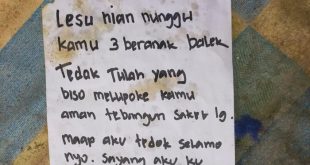 Lesu nian nunggu
kamu 3 beranak balek
Tedok Tulah yang
biso melupoke kamu
aman tebangun saket lg.
maap aku tedok selamo
nyo. sayang aku ku